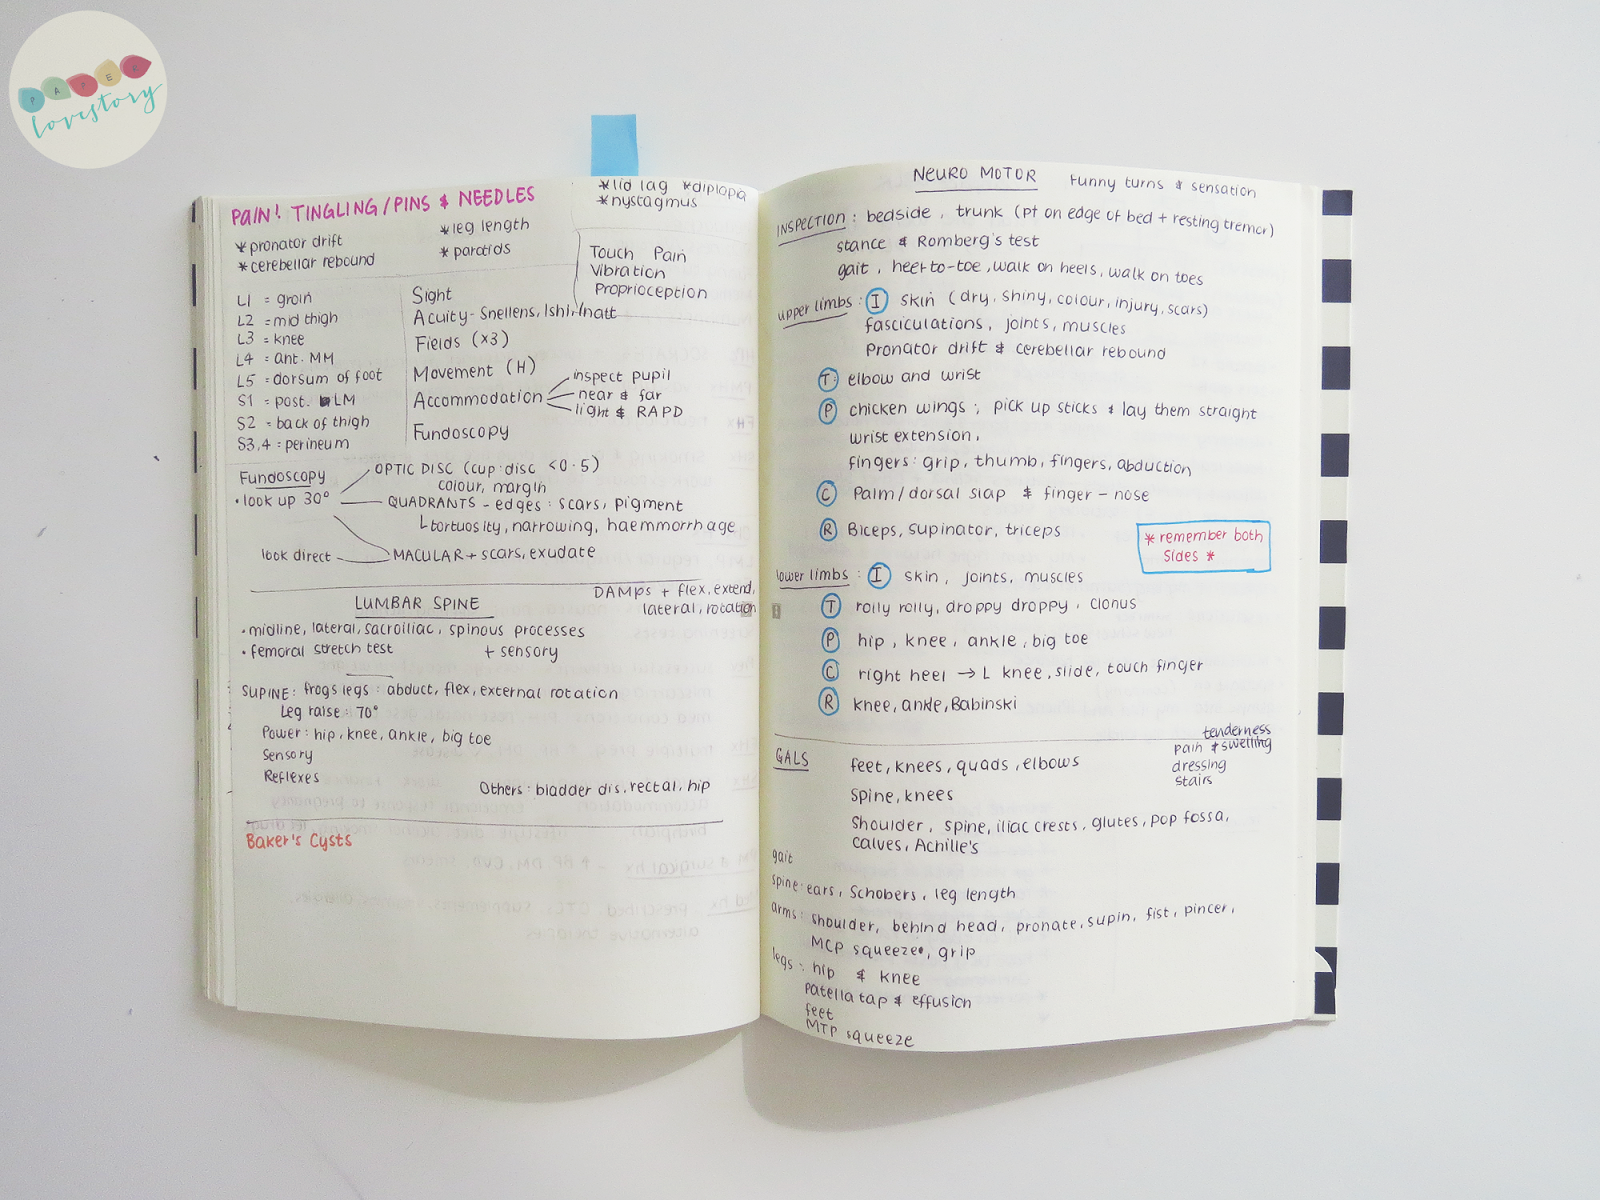 PAPER
lovestory
PAIN! TINGLING/PINS & NEEDLES
* lid lag * diplopia
* nystagmus
* pronator drift
* cerebellar rebound
* leg length
* parotids
Touch Pain
Vibration
Proprioception
L1 = groin
L2 = mid thigh
L3 = knee
L4 = ant. MM
L5 = dorsum of foot
S1 = post. LM
S2 = back of thigh
S3,4 = perineum
Sight
Acuity - Snellens, Ishi, Natt
Fields (x3)
Movement (H)
Accommodation
inspect pupil
near & far
light & RAPD
Fundoscopy
Fundoscopy
• look up 30°
OPTIC DISC (cup:disc <0.5)
colour, margin
QUADRANTS - edges: scars, pigment
tortuosity, narrowing, haemmorrhage
look direct
MACULAR + scars, exudate
LUMBAR SPINE
DAMPs + flex, extend,
lateral, rotation
• midline, lateral, sacroiliac, spinous processes
• femoral stretch test + sensory
SUPINE: frogs legs: abduct, flex, external rotation
Leg raise: 70°
Power: hip, knee, ankle, big toe
Sensory
Reflexes
Others: bladder dis, rectal, hip
Baker's Cysts
NEURO MOTOR Funny turns & sensation
INSPECTION: bedside, trunk (pt on edge of bed + resting tremor)
stance & Romberg's test
gait, heel-to-toe, walk on heels, walk on toes
upper limbs: I skin (dry, shiny, colour, injury, scars)
fasciculations, joints, muscles
Pronator drift & cerebellar rebound
T: elbow and wrist
P chicken wings; pick up sticks & lay them straight
wrist extension,
fingers: grip, thumb, fingers, abduction
C Palm/dorsal slap & finger-nose
R Biceps, supinator, triceps
* remember both
sides *
lower limbs: I skin, joints, muscles
T rolly rolly, droppy droppy, clonus
P hip, knee, ankle, big toe
C right heel → L knee, slide, touch finger
R knee, ankle, Babinski
tenderness
pain & swelling
dressing
stairs
GALS
feet, knees, quads, elbows
spine, knees
Shoulder, spine, iliac crests, glutes, pop fossa,
calves, Achille's
gait
spine: ears, Schobers, leg length
arms: shoulder, behind head, pronate, supin, fist, pincer,
MCP squeeze, grip
legs: hip & knee
patella tap & effusion
feet
MTP squeeze